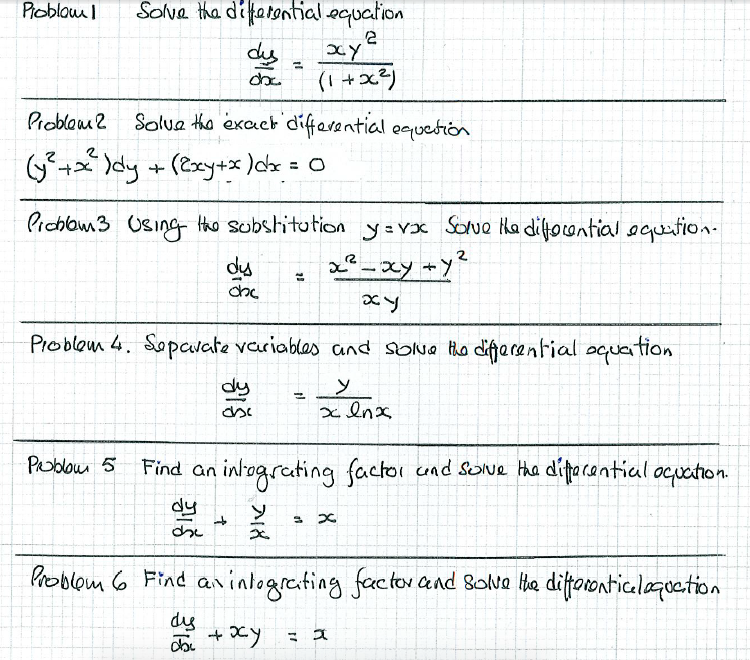 Problem 1 Solve the differential equation
dy/dx = xy²/(1+x²)
Problem 2 Solve the exact differential equation
(y²+x²)dy + (2xy+x)dx = 0
Problem 3 Using the substitution y=vx Solve the differential equation.
dy/dx = x²-xy+y²/xy
Problem 4. Separate variables and solve the differential equation
dy/dx = y/x ln x
Problem 5 Find an integrating factor and solve the differential equation.
dy/dx + y/x = x
Problem 6 Find an integrating factor and solve the differential equation
dy/dx + xy = x